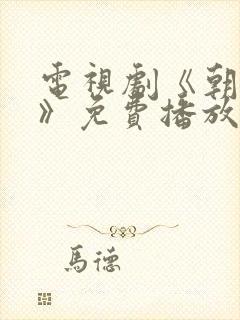 電視劇《朝
》免費播放
馬德